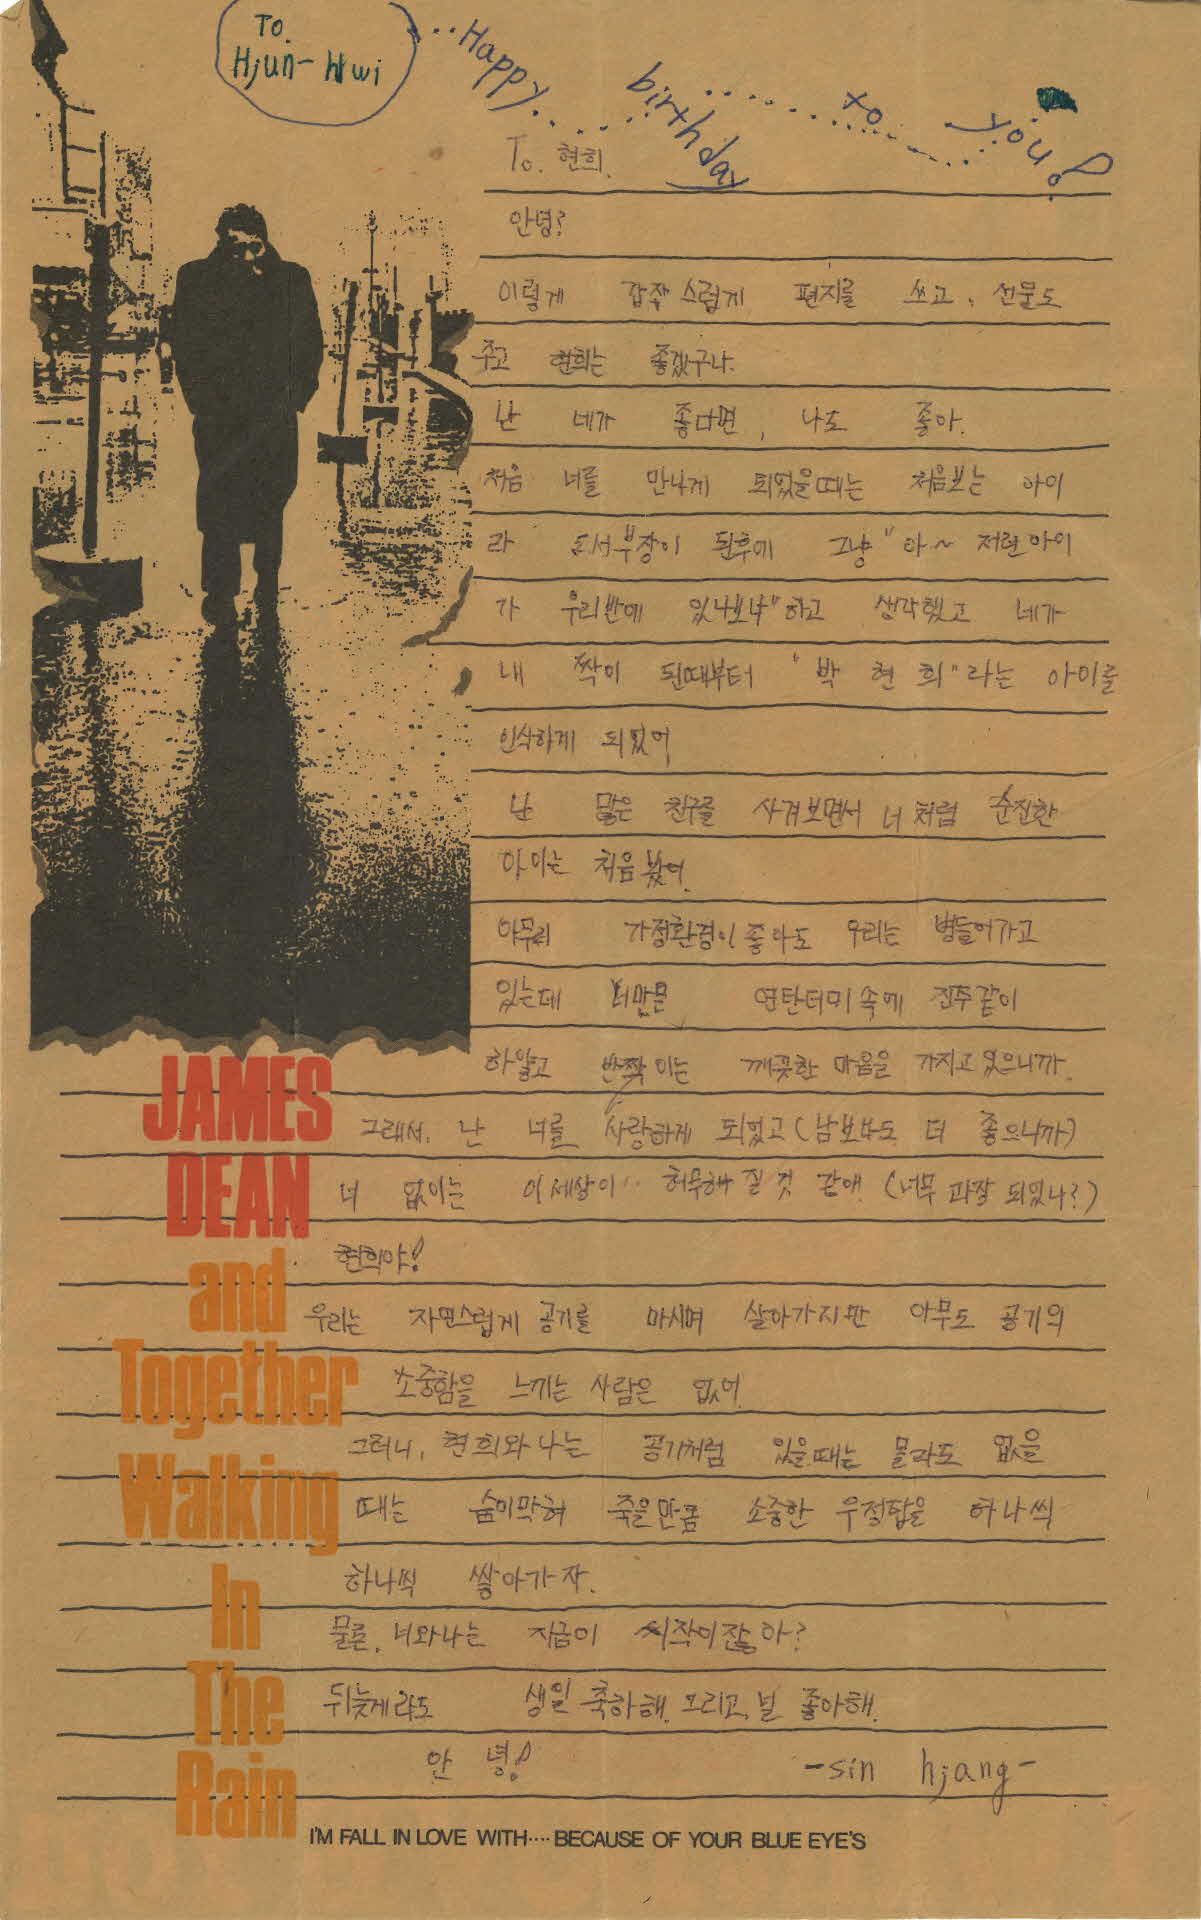 To.
Hjun-Hwi
Happy birthday to you!
To. 현희.
안녕?
이렇게 갑작스럽게 편지를 쓰고, 선물도
주고 현희는 좋겠구나.
난 네가 좋다면, 나도 좋아.
처음 너를 만나게 되었을때는 처음보는 아이
라 도서부장이 된후에 그냥 "아~ 저런아이
가 우리반에 있나보나"하고 생각했고 네가
내 짝이 된때부터 "박 현 희"라는 아이를
인식하게 되었어
난 많은 친구를 사겨보면서 너처럼 순진한
아이는 처음 봤어.
아무리 가정환경이 좋아도 우리는 병들어가고
있는데 너만은 연탄더미 속에 진주같이
하얗고 반짝이는 깨끗한 마음을 가지고 있으니까.
그래서, 난 너를 사랑하게 되었고(남보다도 더 좋으니까)
너 없이는 이 세상이·· 허무해 질 것 같애. (너무 과장 되었나?)
현희야!
우리는 자연스럽게 공기를 마시며 살아가지만 아무도 공기의
소중함을 느끼는 사람은 없어.
그러니, 현희와 나는 공기처럼 있을때는 몰라도 없을
때는 숨이막혀 죽을만큼 소중한 우정탑을 하나씩
하나씩 쌓아가자.
물론, 너와나는 지금이 시작이잖아?
뒤늦게라도 생일 축하해. 그리고, 널 좋아해.
안 녕!
-sin hjang-
JAMES
DEAN
and
Together
Walking
In
The
Rain
I'M FALL IN LOVE WITH···· BECAUSE OF YOUR BLUE EYE'S